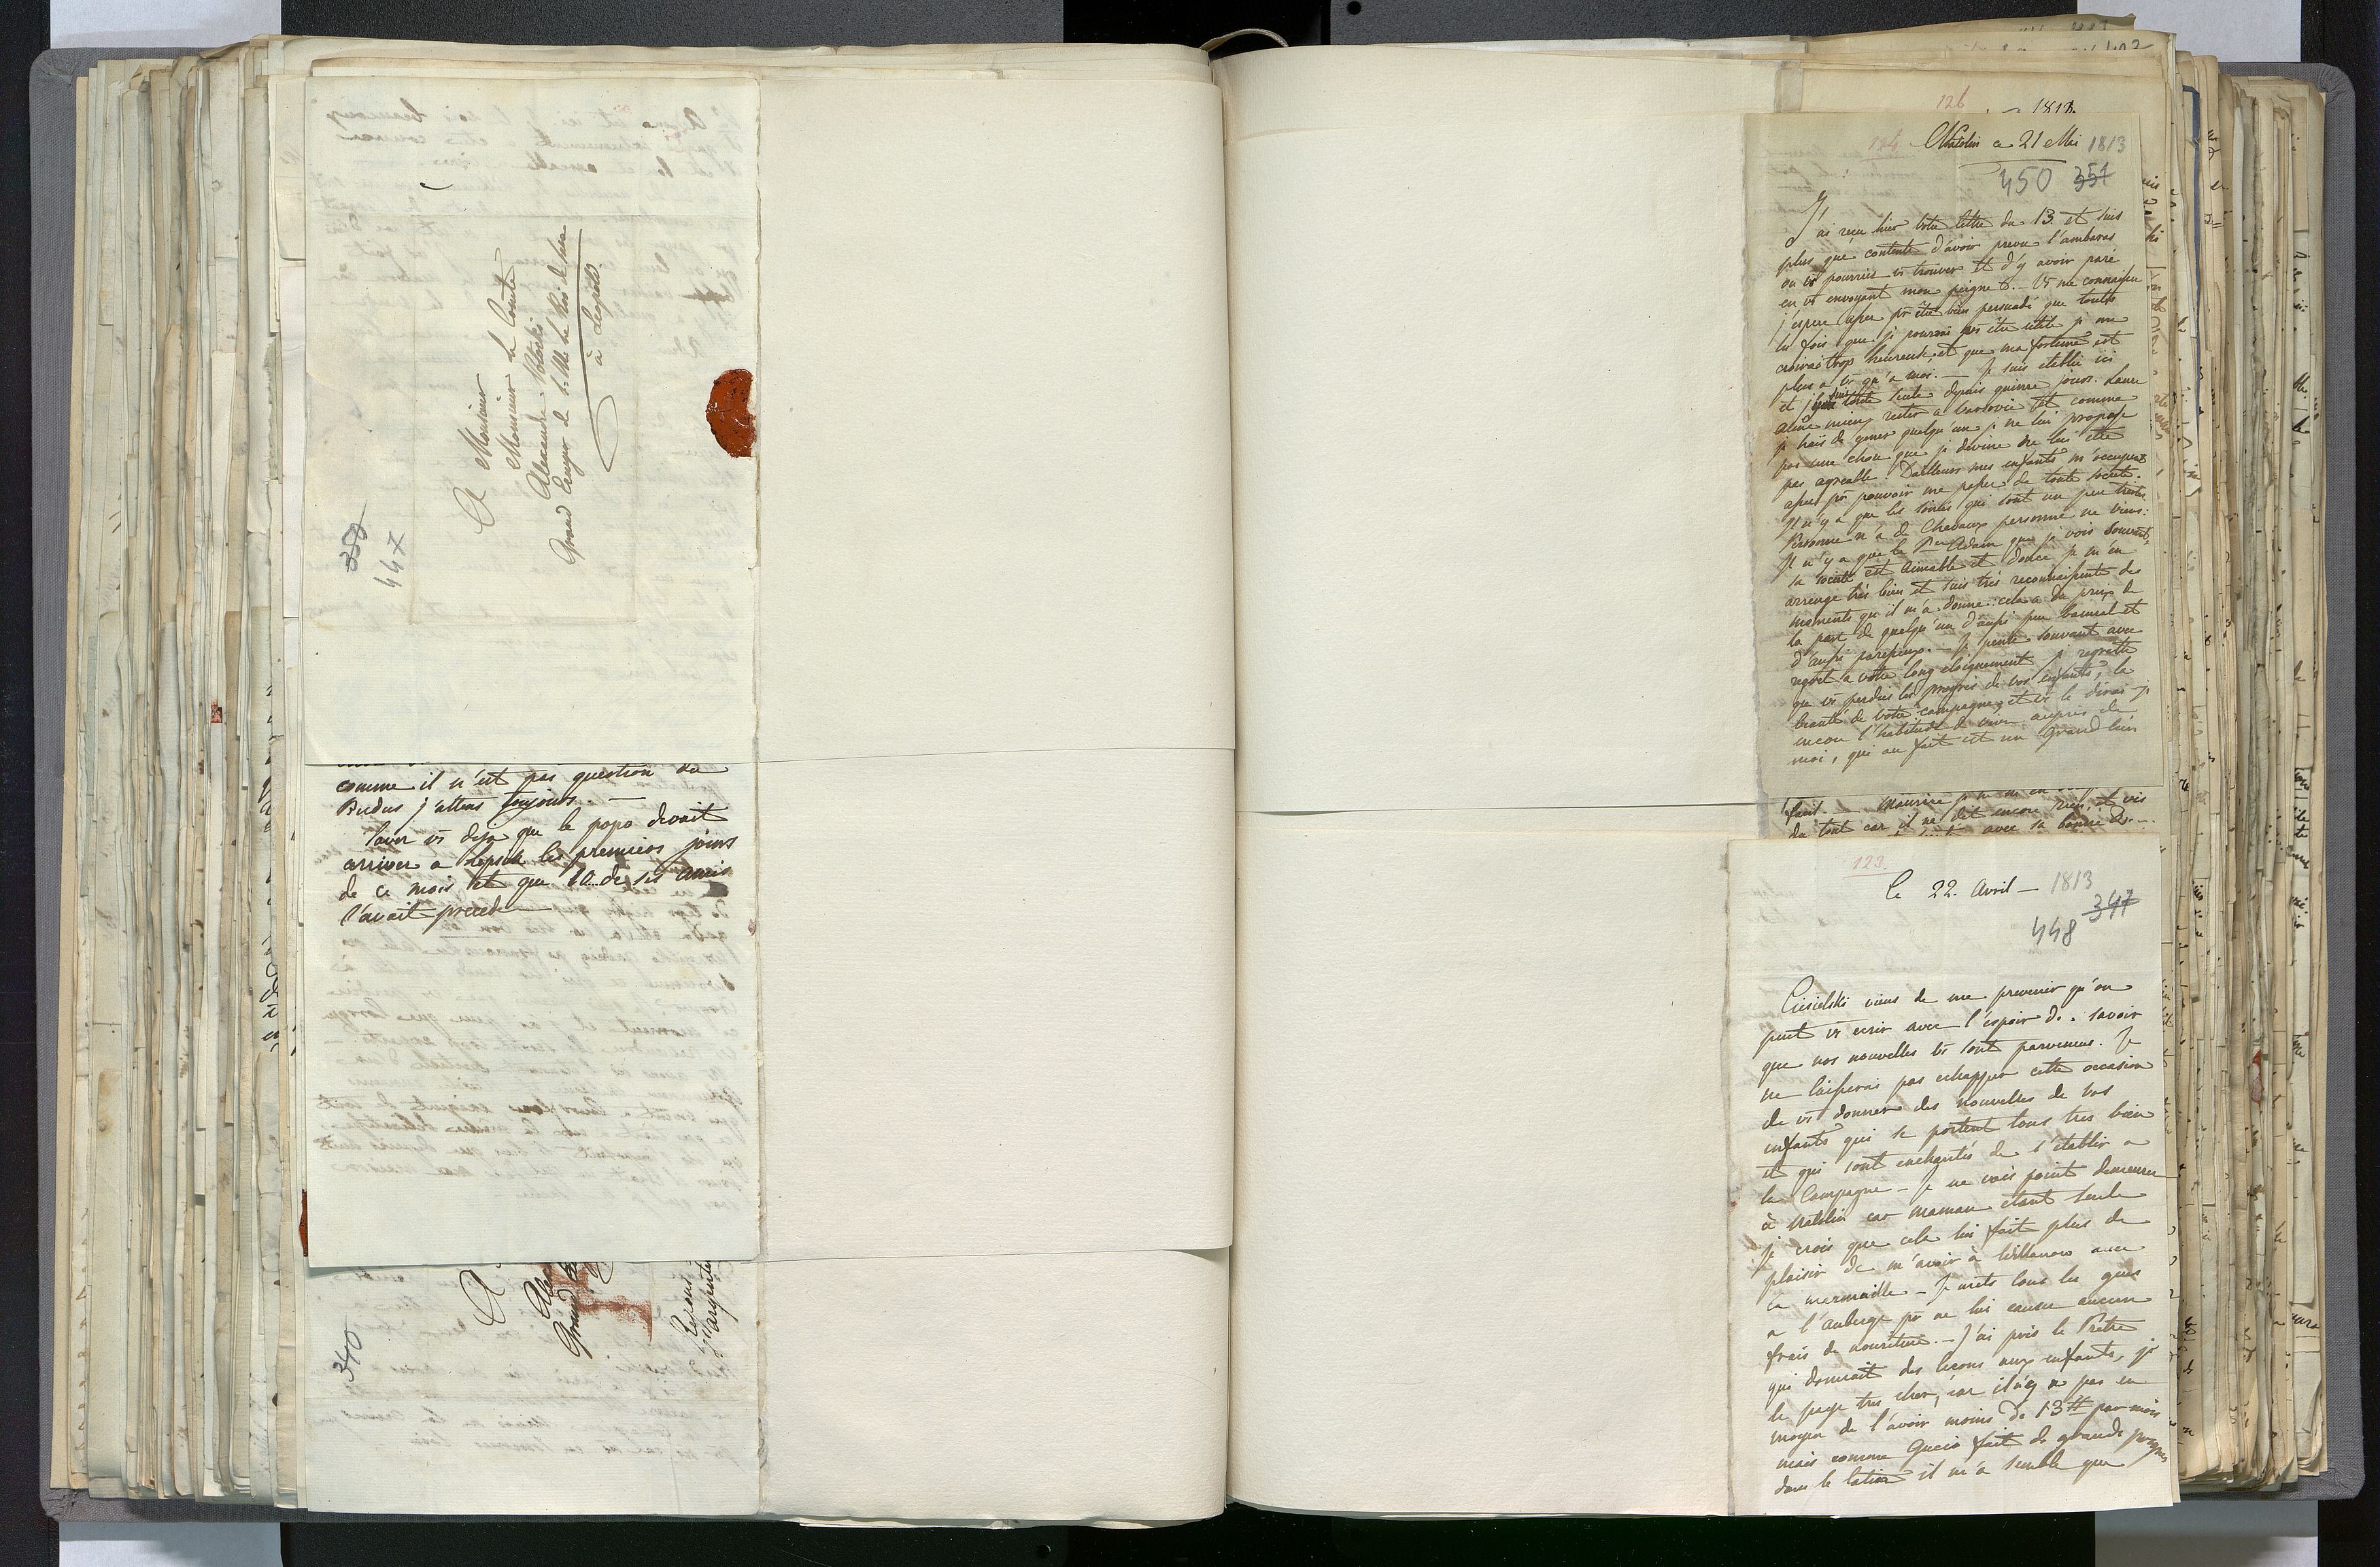 A Monsieur
Monsieur le Comte
Alexandre Potocki
Grand Ecuyer de S. M. le Roi de Saxe
à Leipzik
358
447
comme il n'est pas question du
Budus j'attens toujours. —
Savez vs deja que le papa devait
arriver a Lepsik les premiers jours
de ce mois et que 10 de ses amis
l'avait precede —
A
Alex
Grand E
340
126
1813.
124 Natolin ce 21 Mai 1813
450 351
J'ai reçu hier votre lettre du 13 et suis
plus que contente d'avoir prevu l'ambaras
ou vs pourriez vs trouver et d'y avoir paré
en vs envoyant mon peigne &. — Vs me connaissez
j'espere assez pr être bien persuadé que toutes
les fois que je pourrai vs être utile je me
croirai trop heureuse et que ma fortune est
plus a vs qu'a moi. — Je suis etablie ici
et j'y suis toute seule depuis quinze jours. Laure
aime mieux rester a Varsovie et comme
je haïs de gener quelqu'un je ne lui propose
pas une chose que je devine ne lui etre
pas agreable. Dailleurs mes enfants m'occupent
assez pr pouvoir me passer de toute societé.
Il n'y a que les soirées qui sont un peu tristes.
Personne n'a de Chevaux personne ne viens.
Il n'y a que le Pce Adam que je vois souvent,
sa societé est aimable et douce je m'en
arrenge très bien et suis très reconnaissante des
moments qu'il m'a donné: cela a du prix de
la part de quelqu'un d'aussi peu bannal et
d'aussi paresseux. — Je pense souvant avec
regret a votre long eloignement je regrette
que vs perdiez les progrès de vos enfants, la
beauté de votre campagne, et vs le dirai-je
encore l'habitude de vivre auprès de
moi, qui au fait est un grand bien
fait. — Maurice je ne
du tout car il ne dit encore rien, et vis
avec sa bonne &. —
123.
Le 22. Avril — 1813
347
448
Ciesielski viens de me prevenir qu'on
peut vs ecrir avec l'espoir de savoir
que nos nouvelles vs sont parvenues. Je
ne laisserai pas echapper cette occasion
de vs donner des nouvelles de vos
enfants qui se portent tous tres bien
et qui sont enchantés de s'etablir a
la Campagne — Je ne vais point demeurer
à Natolin car Maman etant seule
je crois que cela lui fait plus de
plaisir de m'avoir à Willanow avec
la marmaille — Je mets tous les gens
a l'auberge pr ne lui causer aucun
frais de nouriture. — J'ai pris le Prêtre
qui donnait des lecons aux enfants, je
le paye tres cher, car il n'y a pas eu
moyen de l'avoir moins de 13 # par mois
mais comme Gucio fait de grands progres
dans le latin il m'a semblé que